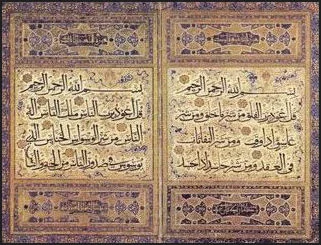 بسم الله الرحمن الرحيم
قل أعوذ برب الفلق من شر ما خلق ومن شر
غاسق إذا وقب ومن شر النفاثات
في العقد ومن شر حاسد إذا حسد
بسم الله الرحمن الرحيم
قل أعوذ برب الناس ملك الناس إله
الناس من شر الوسواس الخناس الذي
يوسوس في صدور الناس من الجنة والناس